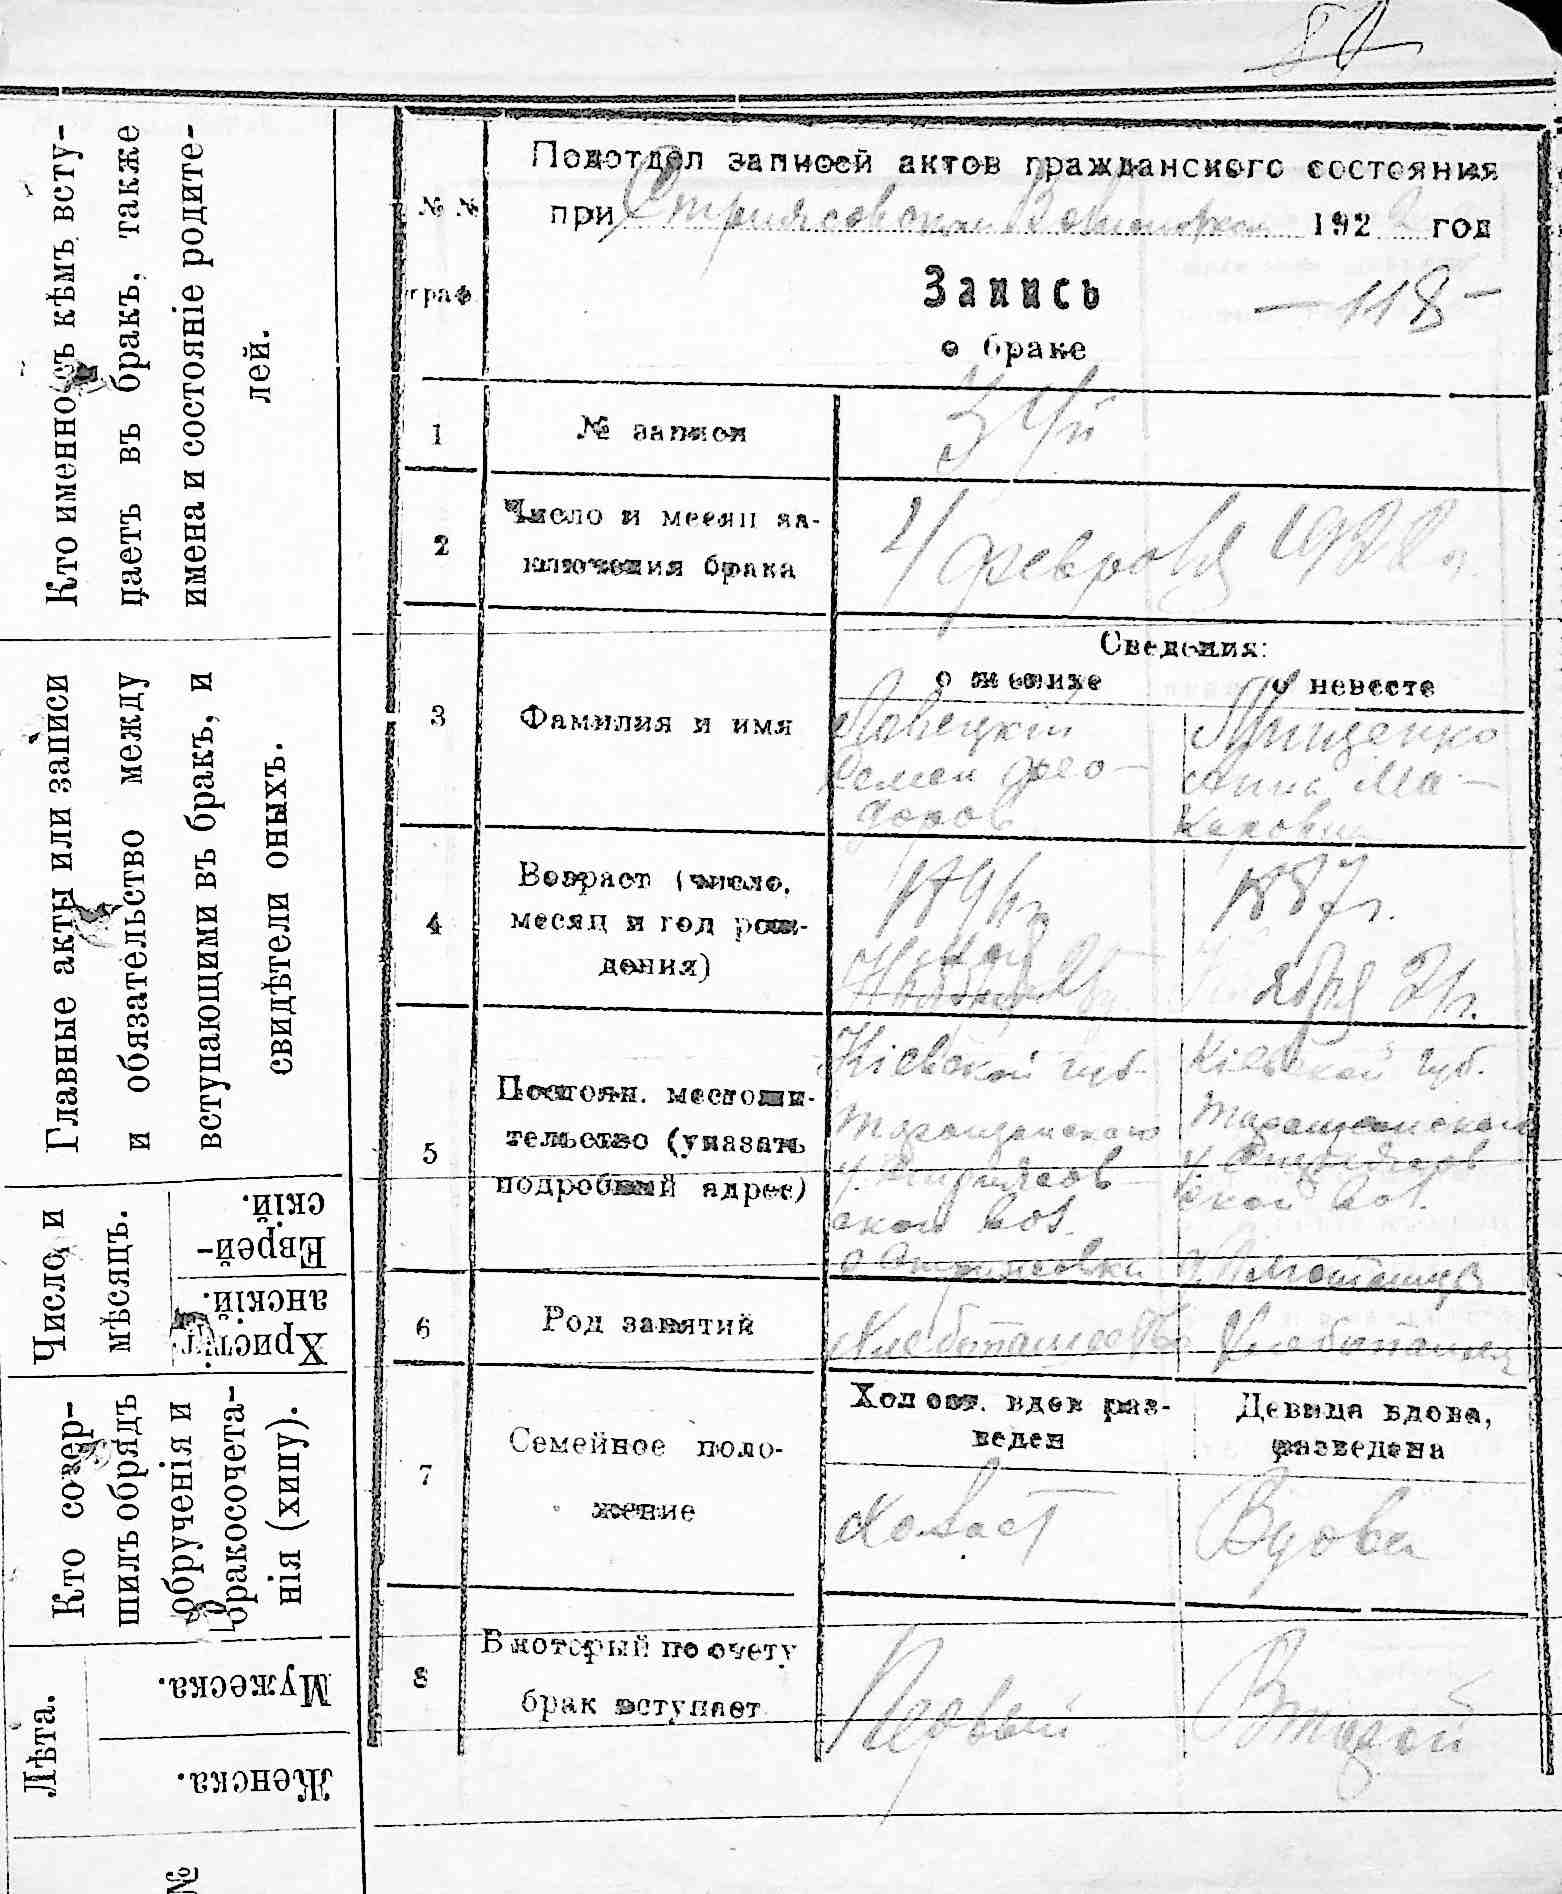 Кто именно съ кѣмъ всту-
паетъ въ бракъ, также
имена и состояніе родите-
лей.
Главные акты или записи
и обязательство между
вступающими въ бракъ, и
свидѣтели оныхъ.
Число и
мѣсяцъ.
Еврей-
скій.
Христі-
анскій.
Кто совер-
шилъ обрядъ
обрученія и
бракосочета-
нія (хипу).
Лѣта.
Мужеска.
Женска.
№
№ №
граф
Подотдел записей актов гражданского состояния
при 1922 год
Запись
о браке
— 118 —
1
№ записи
2
Число и месяц за-
ключения брака
4 февраля 1922 г.
Сведения:
о женихе
о невесте
3
Фамилия и имя
Семен Фео-
доров
Грищенко
Анна Ма-
каровна
4
Возраст (число,
месяц и год рож-
дения)
1887 г.
ября 21 г.
5
Постоян. местожи-
тельство (указать
подробный адрес)
Кіевской губ.
Таращанского
у.
ской вол.
Кіевской губ.
Таращанского
у.
ской вол.
6
Род занятий
Хлебопашество
Хлебопашец
7
Семейное поло-
жение
Холост. вдов раз-
веден
Девица вдова,
разведена
Холост
Вдова
8
В который по счету
брак вступает
Первый
Второй